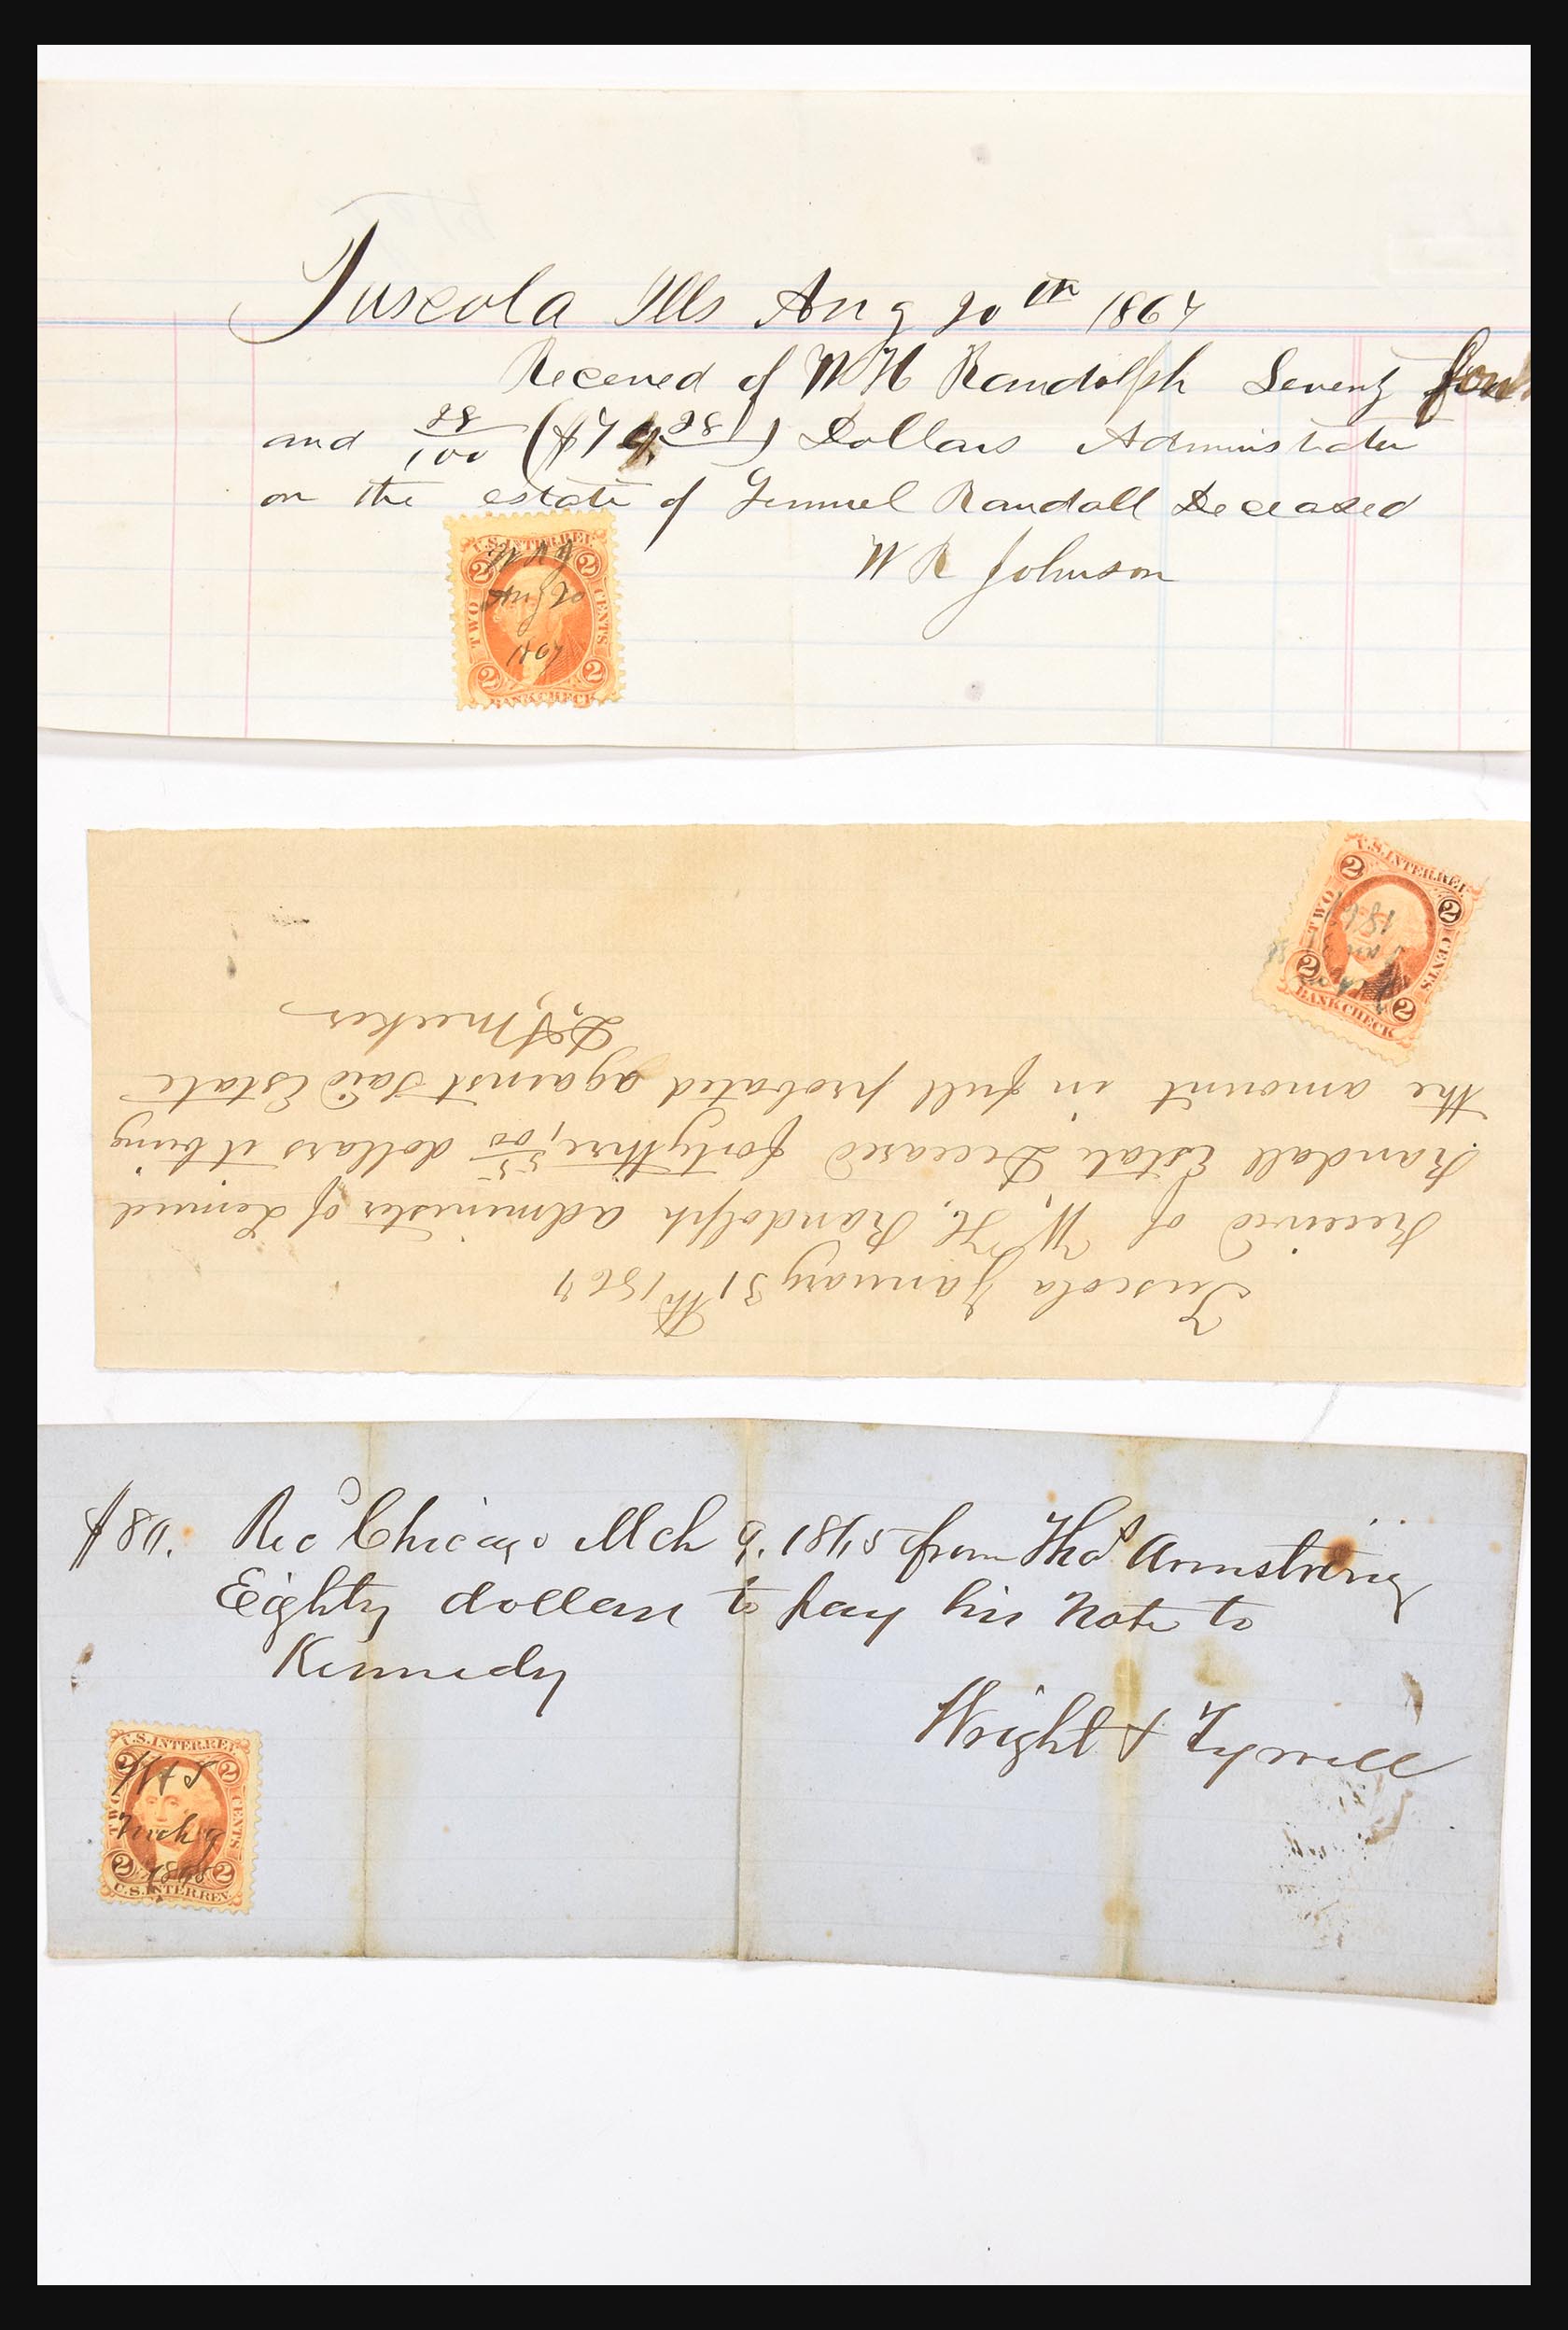 Tuscola Ills Aug 20th 1867
Received of W H Randolph Seventy four
and 28/100 ($74 28) Dollars Administrator
on the estate of Lemuel Randall Deceased
W R Johnson
U.S. INTER. REV.
2 2
W R J
Aug 20
1867
TWO CENTS
2 2
BANK CHECK
U.S. INTER. REV.
2 2
TWO CENTS
1867
2 2
BANK CHECK
Tuscola January 31th 1867
Received of W, H, Randolph administer of Lemuel
Randall Estate Deceased forty three 55/100 dollars it being
the amount in full probated against Said Estate
Meeker
$80. Recd Chicago Mch 9. 1865 from Thos Armstrong
Eighty dollars to pay his Note to
Kennedy
Wright & Tyrrell
U.S. INTER. REV.
2 2
W & T
TWO CENTS
Mch 9
1865
2 2
U.S. INTER. REV.